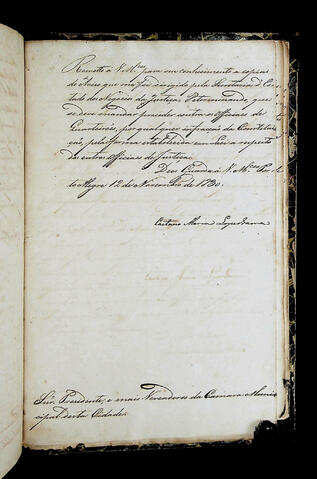 Remetto a V. M.ces para seu conhecimento a copia
do Aviso que me foi dirigido pela Secretaria d'Es-
tado dos Negocios da Justiça, Determinando, que
se deve mandar proceder contra officiaes de
Quarteirão, por qualquer infracção de Constitui-
ção, pela forma estabelecida em Lei a respeito
dos outros Officiaes de Justiça.
Deos Guarde a V. M.ces Por-
to Alegre 12 de Novembro de 1830.
Caetano Maria Lopes Gama
Snr. Presidente, e mais Vereadores da Camara Muni-
cipal desta Cidade.